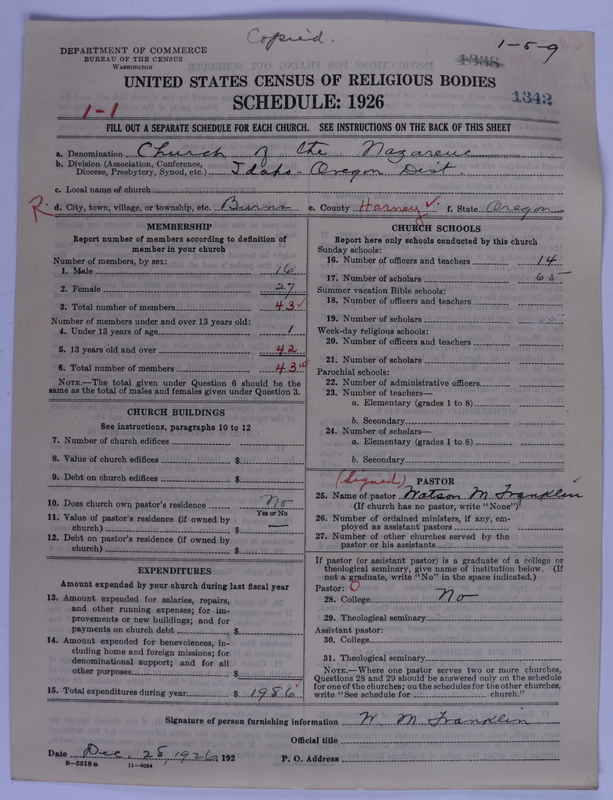 Copied.
1-5-9
DEPARTMENT OF COMMERCE
BUREAU OF THE CENSUS
WASHINGTON
1338
UNITED STATES CENSUS OF RELIGIOUS BODIES
SCHEDULE: 1926
1342
1-1
FILL OUT A SEPARATE SCHEDULE FOR EACH CHURCH. SEE INSTRUCTIONS ON THE BACK OF THIS SHEET
a. Denomination Church of the Nazarene
b. Division (Association, Conference, Diocese, Presbytery, Synod, etc.) Idaho-Oregon Dist.
c. Local name of church
R d. City, town, village, or township, etc. Burns e. County Harney ✓ f. State Oregon
MEMBERSHIP
Report number of members according to definition of
member in your church
Number of members, by sex:
1. Male 16
2. Female 27
3. Total number of members 43 ✓
Number of members under and over 13 years old:
4. Under 13 years of age 1
5. 13 years old and over 42
6. Total number of members 43 ✓
NOTE.—The total given under Question 6 should be the
same as the total of males and females given under Question 3.
CHURCH BUILDINGS
See instructions, paragraphs 10 to 12
7. Number of church edifices
8. Value of church edifices $
9. Debt on church edifices $
10. Does church own pastor's residence No
Yes or No
11. Value of pastor's residence (if owned by
church) $ —
12. Debt on pastor's residence (if owned by
church) $
EXPENDITURES
Amount expended by your church during last fiscal year
13. Amount expended for salaries, repairs,
and other running expenses; for im-
provements or new buildings; and for
payments on church debt $
14. Amount expended for benevolences, in-
cluding home and foreign missions; for
denominational support; and for all
other purposes $
15. Total expenditures during year $ 1986
CHURCH SCHOOLS
Report here only schools conducted by this church
Sunday schools:
16. Number of officers and teachers 14
17. Number of scholars 65
Summer vacation Bible schools:
18. Number of officers and teachers
19. Number of scholars
Week-day religious schools:
20. Number of officers and teachers
21. Number of scholars
Parochial schools:
22. Number of administrative officers
23. Number of teachers—
a. Elementary (grades 1 to 8)
b. Secondary
24. Number of scholars—
a. Elementary (grades 1 to 8)
b. Secondary
(Signed) PASTOR
25. Name of pastor Watson M Franklin
(If church has no pastor, write "None")
26. Number of ordained ministers, if any, em-
ployed as assistant pastors
27. Number of other churches served by the
pastor or his assistants
If pastor (or assistant pastor) is a graduate of a college or
theological seminary, give name of institution below. (If
not a graduate, write "No" in the space indicated.)
Pastor: 0
28. College No
29. Theological seminary
Assistant pastor:
30. College
31. Theological seminary
NOTE.—Where one pastor serves two or more churches,
Questions 28 and 29 should be answered only on the schedule
for one of the churches; on the schedules for the other churches,
write "See schedule for church."
Signature of person furnishing information W. M Franklin
Official title
Date Dec. 28, 1926, 192 P. O. Address
8-5318a 11-9034